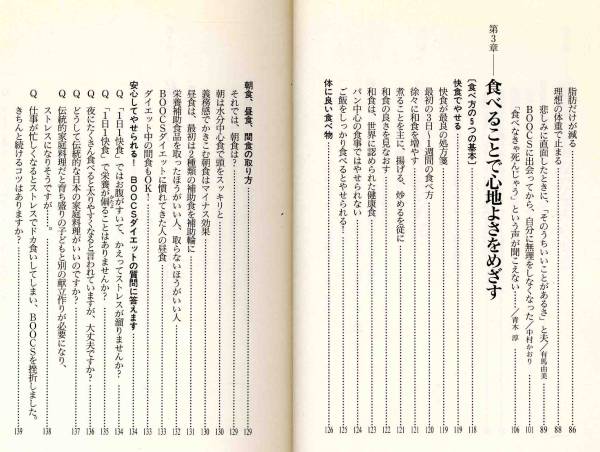 脂肪だけが減る……86
理想の体重で止まる……88
悲しみに直面したときに、「そのうちいいことがあるさ」と夫／有馬由美……89
BOOCSに出会ってから、自分に無理をしなくなった／中村かおり……101
「食べなきゃ死んじゃう」という声が聞こえない……／青木 淳……106
第3章――食べることで心地よさをめざす
〔食べ方の5つの基本〕……118
快食でやせる……119
快食が最良の処方箋……119
最初の3日～1週間の食べ方……120
徐々に和食を増やす……121
煮ることを主に、揚げる、炒めるを従に……121
和食の良さを見なおす……122
和食は、世界に認められた健康食……123
パン中心の食事ではやせられない……124
ご飯をしっかり食べるとやせられる!……125
体に良い食べ物……126
朝食、昼食、間食の取り方……129
それでは、朝食は?……129
朝は水分中心食で頭をスッキリと……130
義務感でかきこむ朝食はマイナス効果……130
昼食は、最初は2種類の補助食を補助輪に……131
栄養補助食品を取ったほうがいい人、取らないほうがいい人……132
BOOCSダイエットに慣れてきた人の昼食……133
ダイエット中の間食もOK!……133
安心してやせられる! BOOCSダイエットの質問に答えます
Q 「1日1快食」ではお腹がすいて、かえってストレスが溜りませんか?……134
Q 「1日1快食」で栄養が偏ることはありませんか?……135
Q 夜にたくさん食べると太りやすくなると言われていますが、大丈夫ですか?……136
Q どうして伝統的な日本の家庭料理がいいのですか?……137
Q 伝統的家庭料理だと育ち盛りの子どもと別の献立作りが必要になり、
ストレスになりそうですが……。……138
Q 仕事が忙しくなるとストレスでドカ食いしてしまい、BOOCSを挫折しました。
きちんと続けるコツはありますか?……139